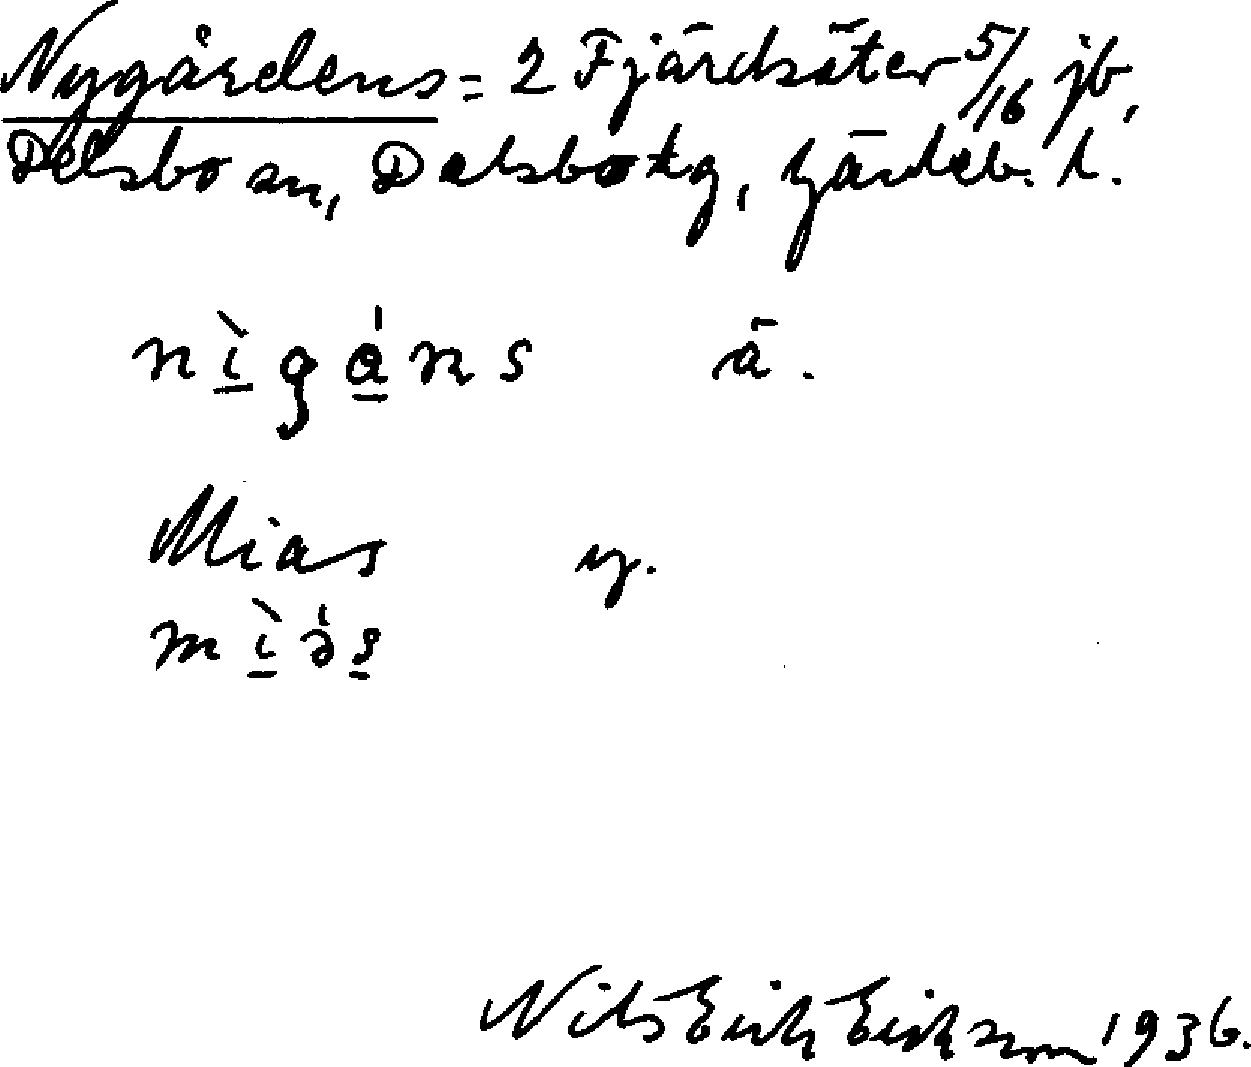 Nygårdens = 2 Fjärdsäter 5/16 jb,
Delsbo sn, Delsbo tg, Gävleb. l.
nìgáns ä.
Mias y.
mìə́s
Nils Erik Eriksson 1936.